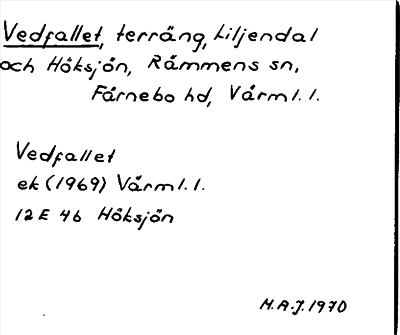 Vedfallet, terräng, Liljendal
och Höksjön, Rämmens sn,
Färnebo hd, Värml. l.
Vedfallet
ek (1969) Värml. l.
12E 4b Höksjön
M.A.J. 1970